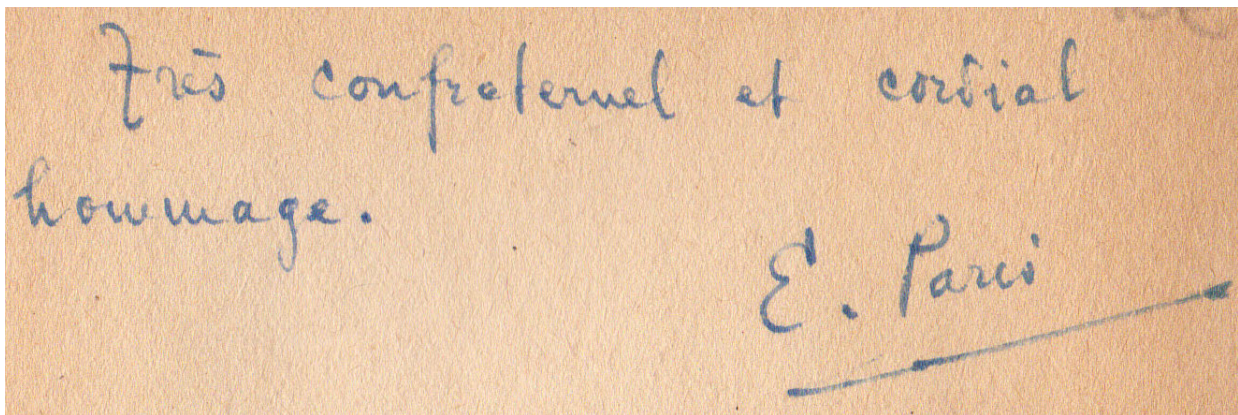 Très confraternel et cordial
hommage.
E. Paris